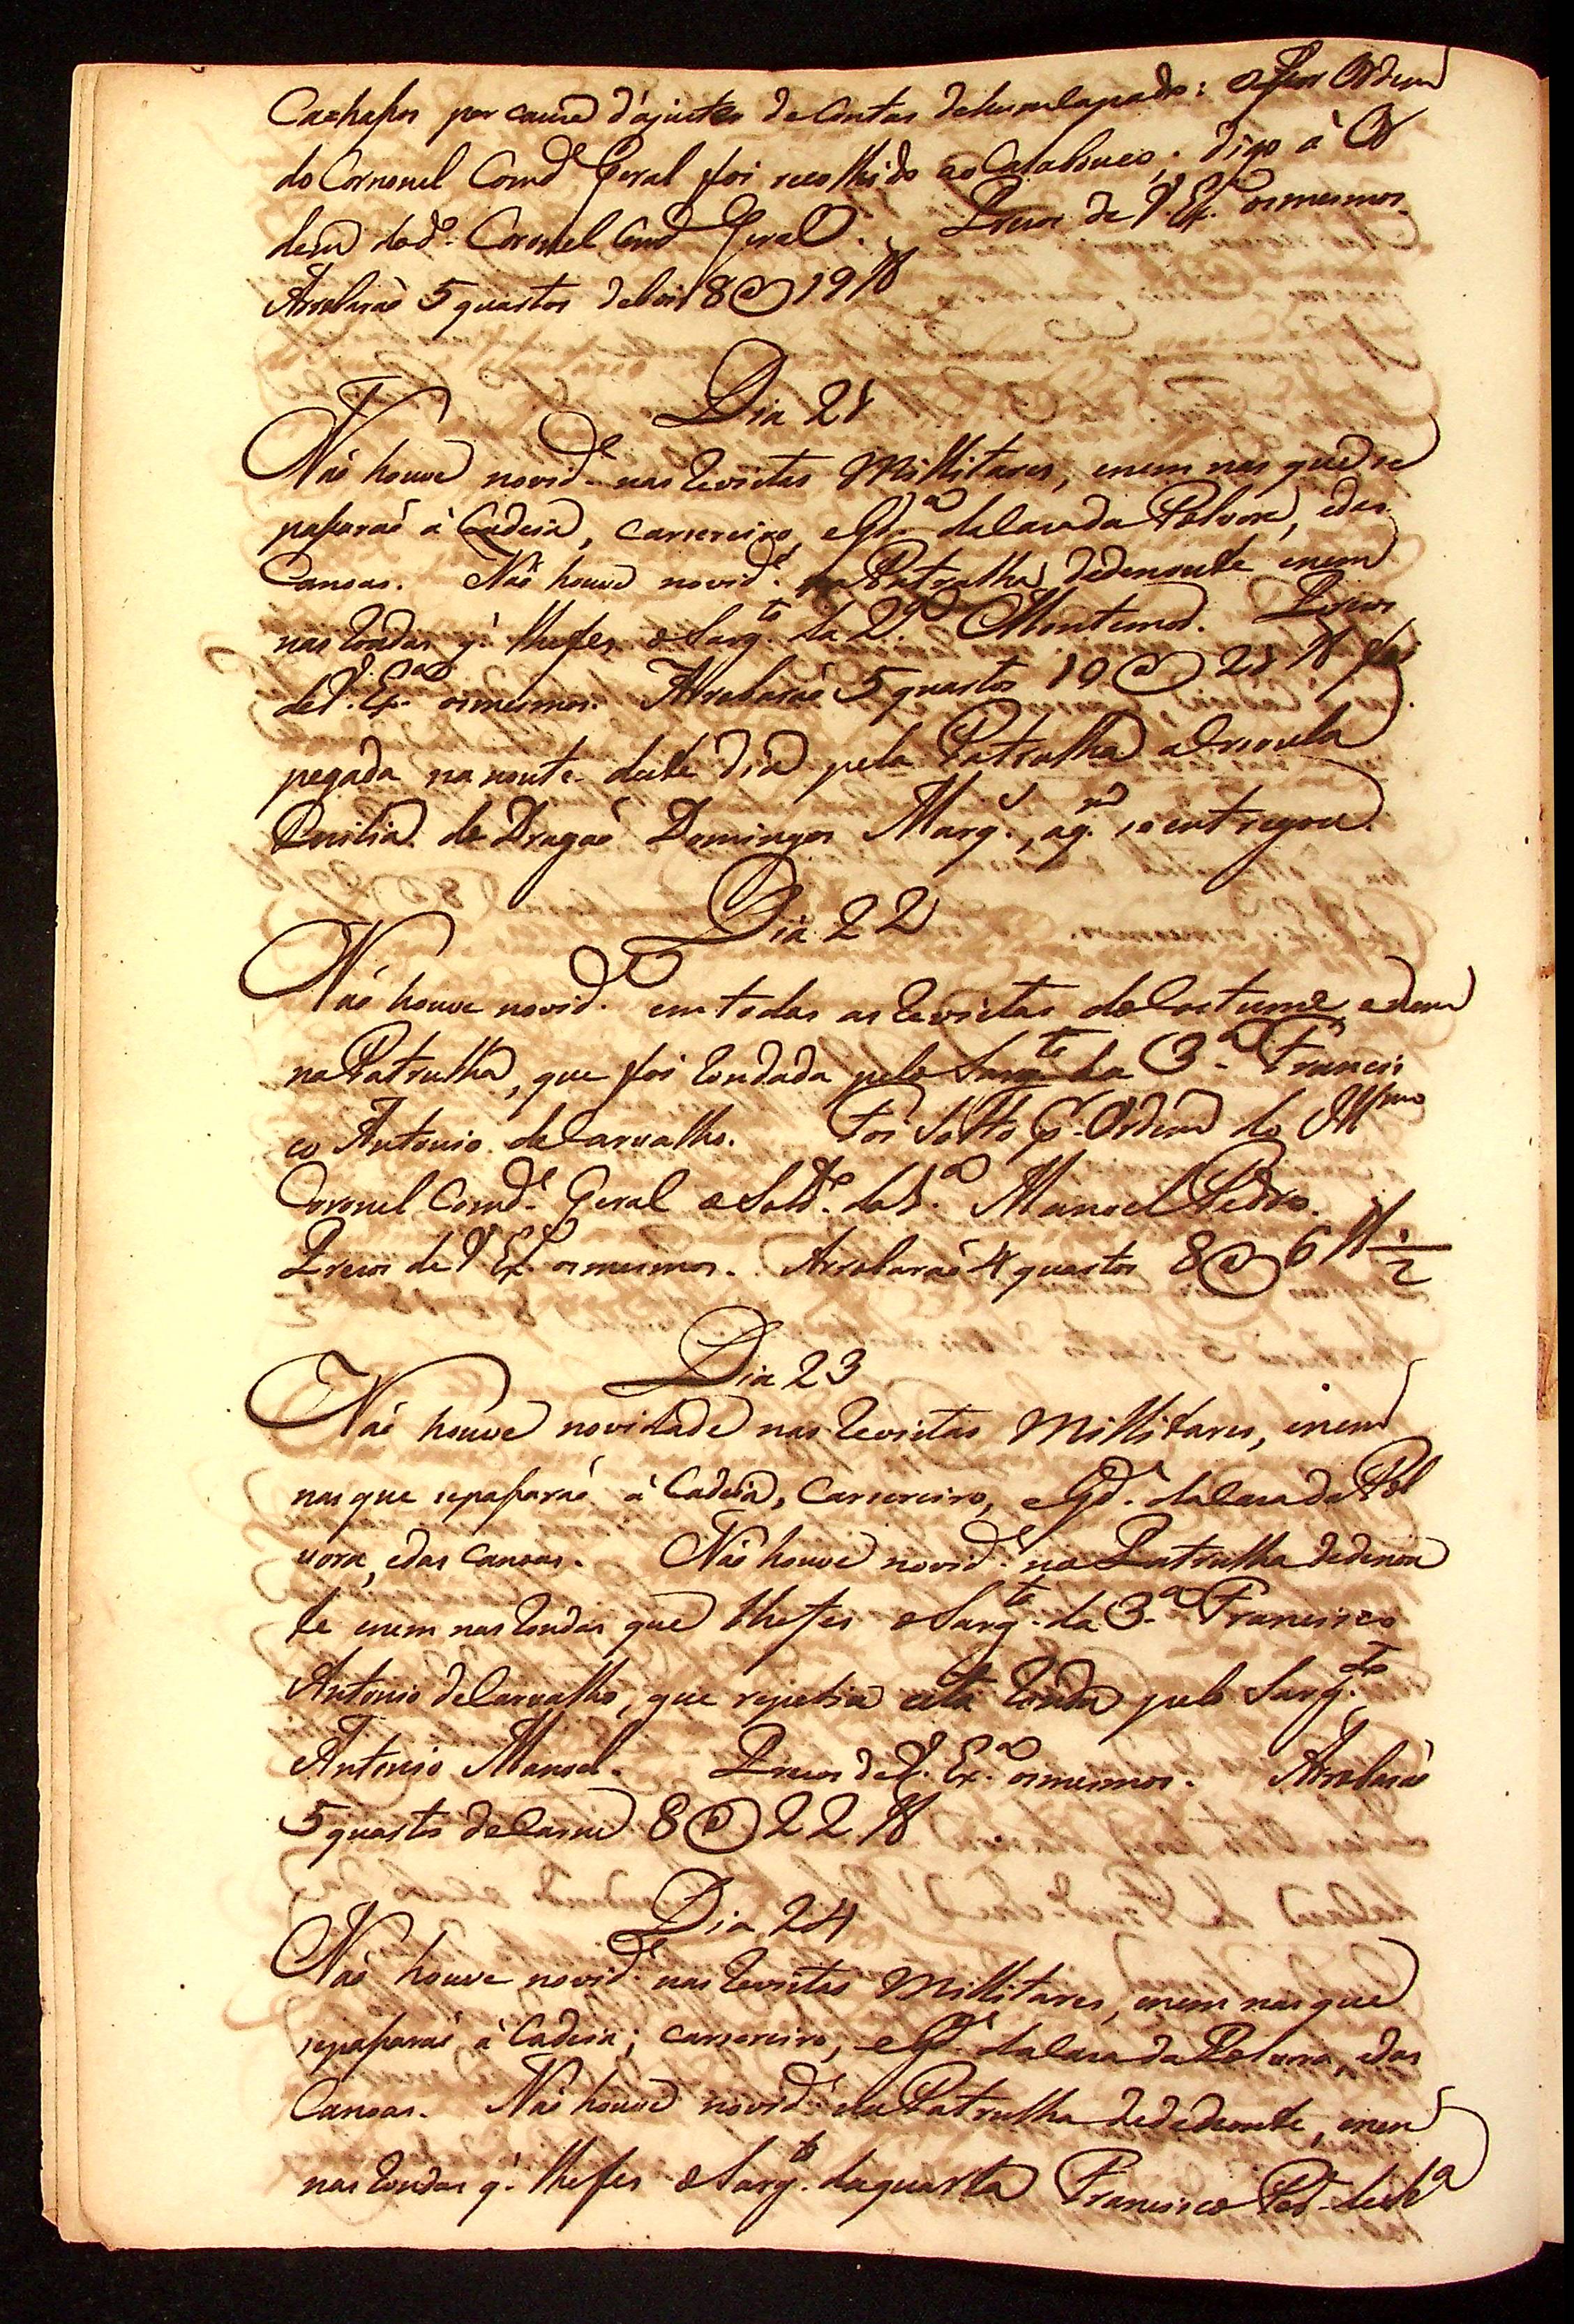 Cachaços por causa d'ajustes de Contas de hum lapado: e por Ordem
do Cornonel Comd.e Geral foi recolhido ao Calabouco; digo à Or
dem do d.o Coronel Comd.e Geral. Prezos de V. Ex.a os mesmos.
Arrobaraõ 5 quartos de boi 8 @ 19 lb
Dia 21
Naõ houve novid.e nas Revistas Millitares, enem nas que se
passaraõ à Cadeia, carsereiro, e Gd.a da Caza da Polvora, edas
Canoas. Naõ houve novid.e na Patrulha dedenoute enem
nas Rondas q'. lhe fes o Sarg.to da 2.a Montemor. Prezos
de V. Ex.a os mesmos. Arrobaraõ 5 quartos 10 @ 21 lb foi
pegada na noute deste dia pela Patrulha a Crioula
Cecilia de Dragaõ Domingos Marq.s, a q.m se entregou.
Dia 22
Naõ houve novid.e em todas as Revistas de Costume, enem
na Patrulha, que foi Rondada pelo Sarg.to da 3.a Francis
co Antonio de Carvalho. Foi Solto p.r Ordem do Ill.mo
Coronel Comd.e Geral o Sold.o da 1.a Manoel Pedro.
Prezos de V. Ex.a os mesmos. Arrobaraõ 4 quartos 8 @ 6 lb 1/2
Dia 23
Naõ houve novidade nas Revistas Millitares, enem
nas que sepassaraõ à Cadeia, Carsereiro, e Gd.a da Caza da Pol
vora, edas Canoas. Naõ houve novid.e na Patrulha dedenou
te enem nas Rondas que lhe fes o Sarg.to da 3.a Francisco
Antonio de Carvalho, que repetia esta Ronda pelo Sarg.to
Antonio Manoel. Prezos de V. Ex.a os mesmos. Arrobaraõ
5 quartos de Carne 8 @ 22 lb
Dia 24
Naõ houve novid.e nas Revistas Millitares, enem nas que
sepassaraõ à Cadeia; carsereiro, e Gd.a da Caza da Polvora, edas
Canoas. Naõ houve novid.e na Patrulha dededenoute, enem
nas Rondas q'. lhe fes o Sarg.to da quarta Francisco